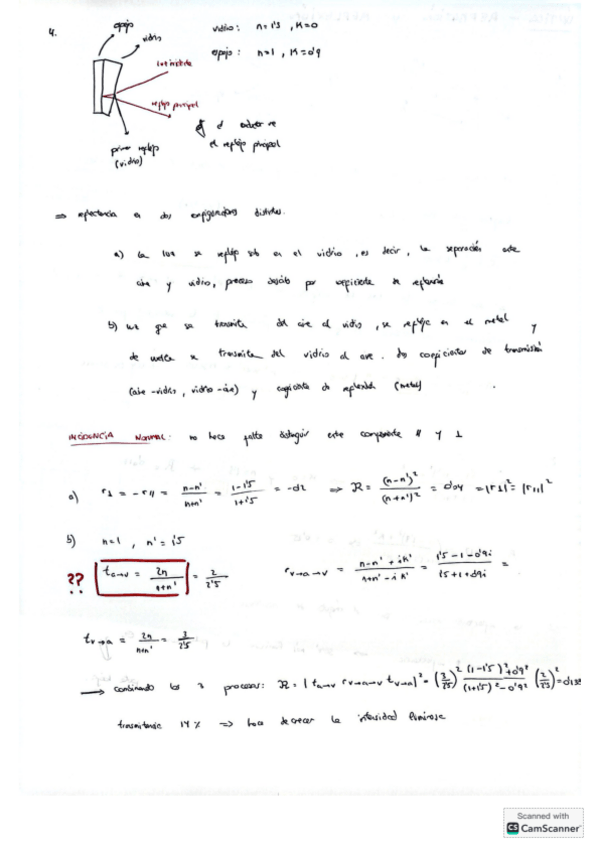 4.
espejo
vidrio
vidrio: n=1'5, K=0
espejo: n=1, K=0'9
luz incidente
reflejo principal
primer reflejo
(vidrio)
el reflejo principal
⇒ reflectancia en dos configuraciones distintas.
a) La luz se refleja solo en el vidrio, es decir, la separación entre
aire y vidrio, proceso descrito por coeficiente de reflexión
b) luz que se transmite del aire al vidrio, se refleja en el metal y
de vuelta se transmite del vidrio al aire. dos coeficientes de transmisión
(aire-vidrio, vidrio-aire) y coeficiente de reflexión (metal)
INCIDENCIA NORMAL: no hace falta distinguir entre componente // y ⊥
a) r⊥ = -r// = (n-n')/(n+n') = (1-1'5)/(1+1'5) = -0'2 ⇒ R = (n-n')²/(n+n')² = 0'04 = |r⊥|² = |r//|²
b) n=1, n'=1'5
?? t a→v = 2n/(n+n') = 2/2'5 r v→a→v = (n-n'+iK')/(n+n'-iK') = (1'5-1-0'9i)/(1'5+1+0'9i) =
t v→a = 2n/(n+n') = 3/2'5
→ combinando los 3 procesos: R = |t a→v r v→a→v t v→a|² = (2/2'5)² ((1-1'5)²+0'9²)/((1+1'5)²-0'9²) (3/2'5)² =
transmitancia 14% ⇒ hace decrecer la intensidad luminosa
Scanned with
CS CamScanner